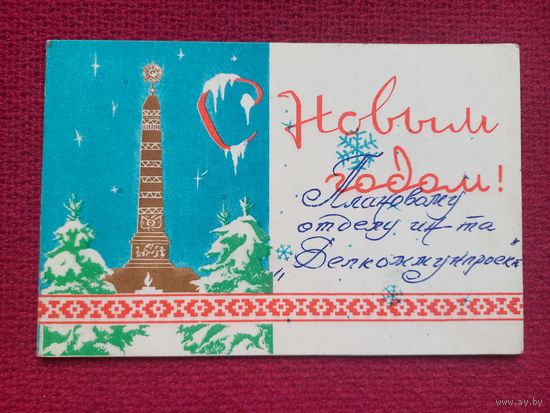 С Новым
годом!
Плановому
отделу ин-та
„Белкоммунпроект"
www.ay.by